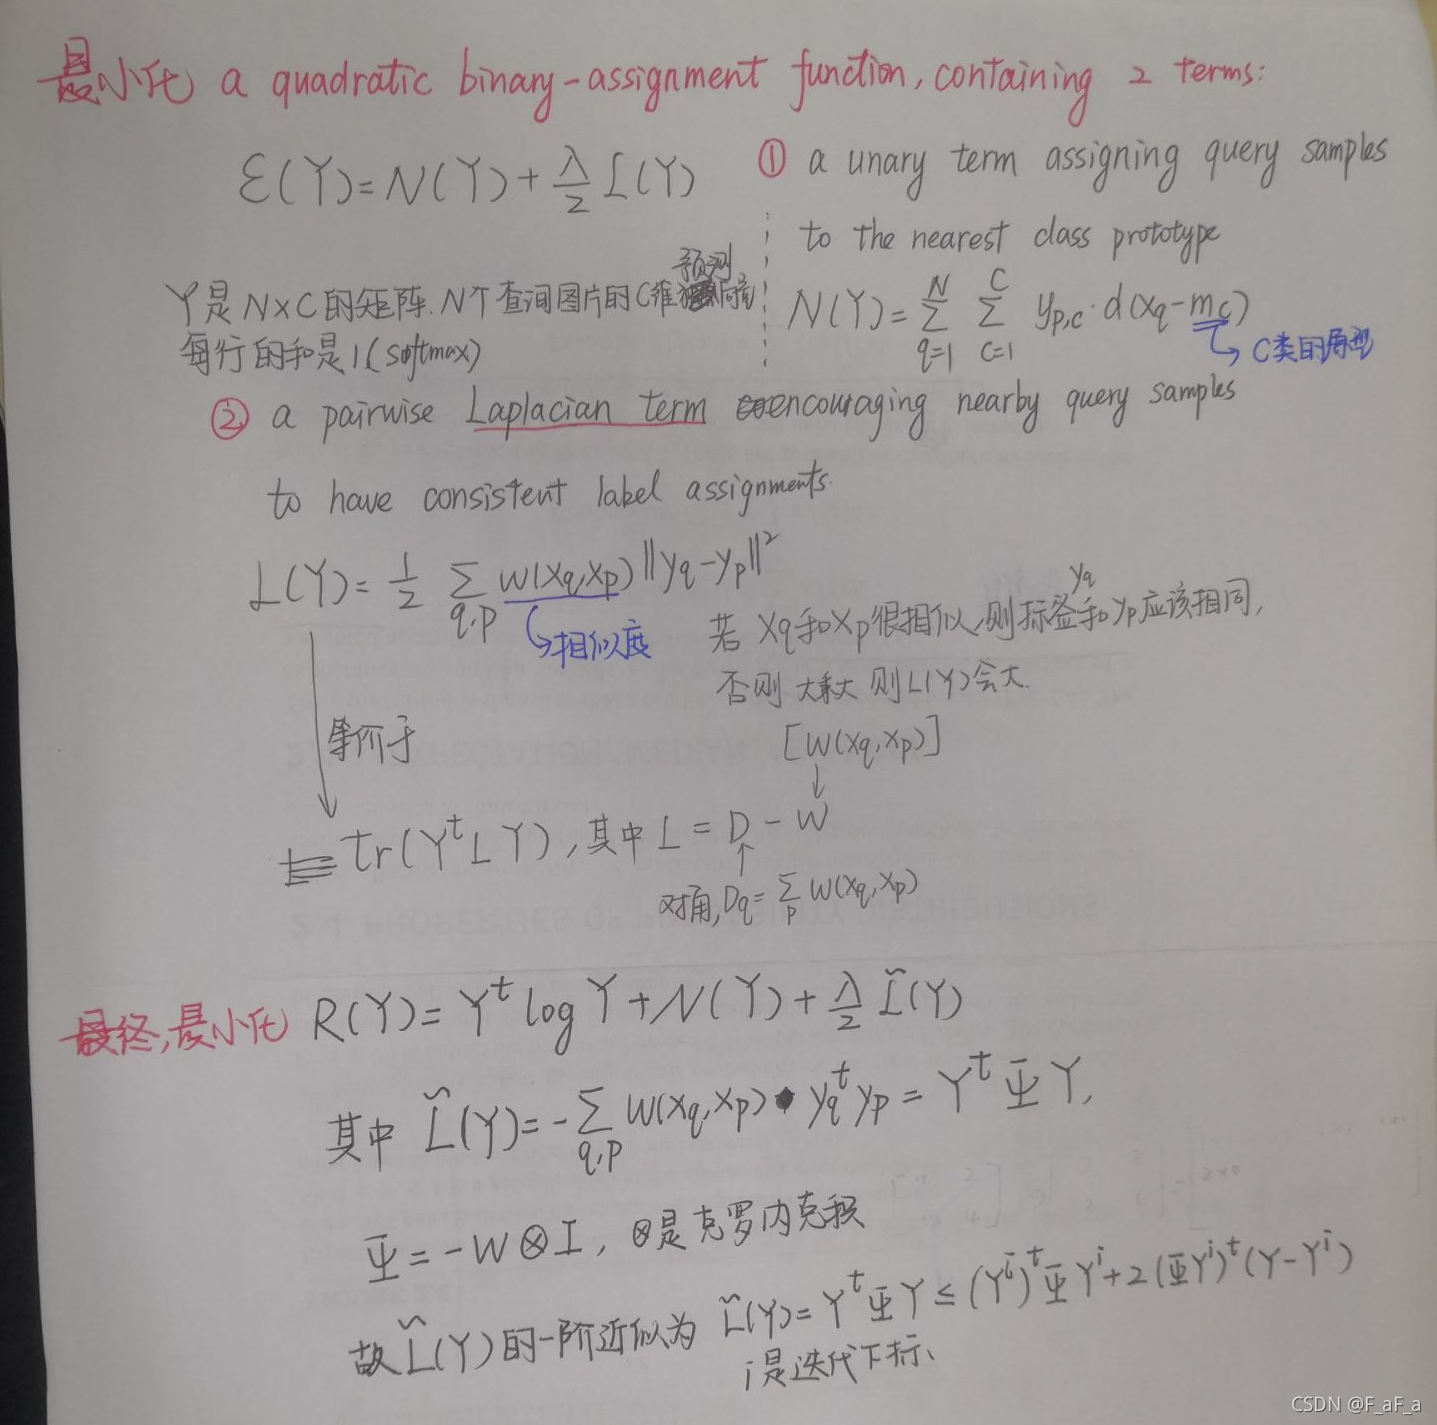 最小化 a quadratic binary-assignment function, containing 2 terms:
ε(Y)=N(Y)+λ/2 L(Y)
① a unary term assigning query samples
to the nearest class prototype
N(Y)=∑_{q=1}^{N} ∑_{c=1}^{C} y_{p,c}·d(x_q-m_c)
C类的原型
预测
Y是N×C的矩阵.N个查询图片的C维向量
每行的和是1(softmax)
② a pairwise Laplacian term encouraging nearby query samples
to have consistent label assignments.
L(Y)=1/2 ∑_{q,p} W(x_q,x_p)||y_q-y_p||²
相似度
y_q
若 x_q和x_p很相似,则标签和y_p应该相同,
否则 大乘大 则L(Y)会大.
等价于
[W(x_q,x_p)]
↓
tr(Y^t L Y),其中 L = D - W
↑
对角,D_q=∑_p W(x_q,x_p)
最终,最小化 R(Y)=Y^t log Y+N(Y)+λ/2 L̃(Y)
其中 L̃(Y)=-∑_{q,p} W(x_q,x_p)•y_q^t y_p=Y^t Ψ Y,
Ψ=-W⊗I, ⊗是克罗内克积
故L̃(Y)的一阶近似为 L̃(Y)=Y^t Ψ Y≤(Y^i)^t Ψ Y^i+2(ΨY^i)^t(Y-Y^i)
i是迭代下标、
CSDN @F_aF_a